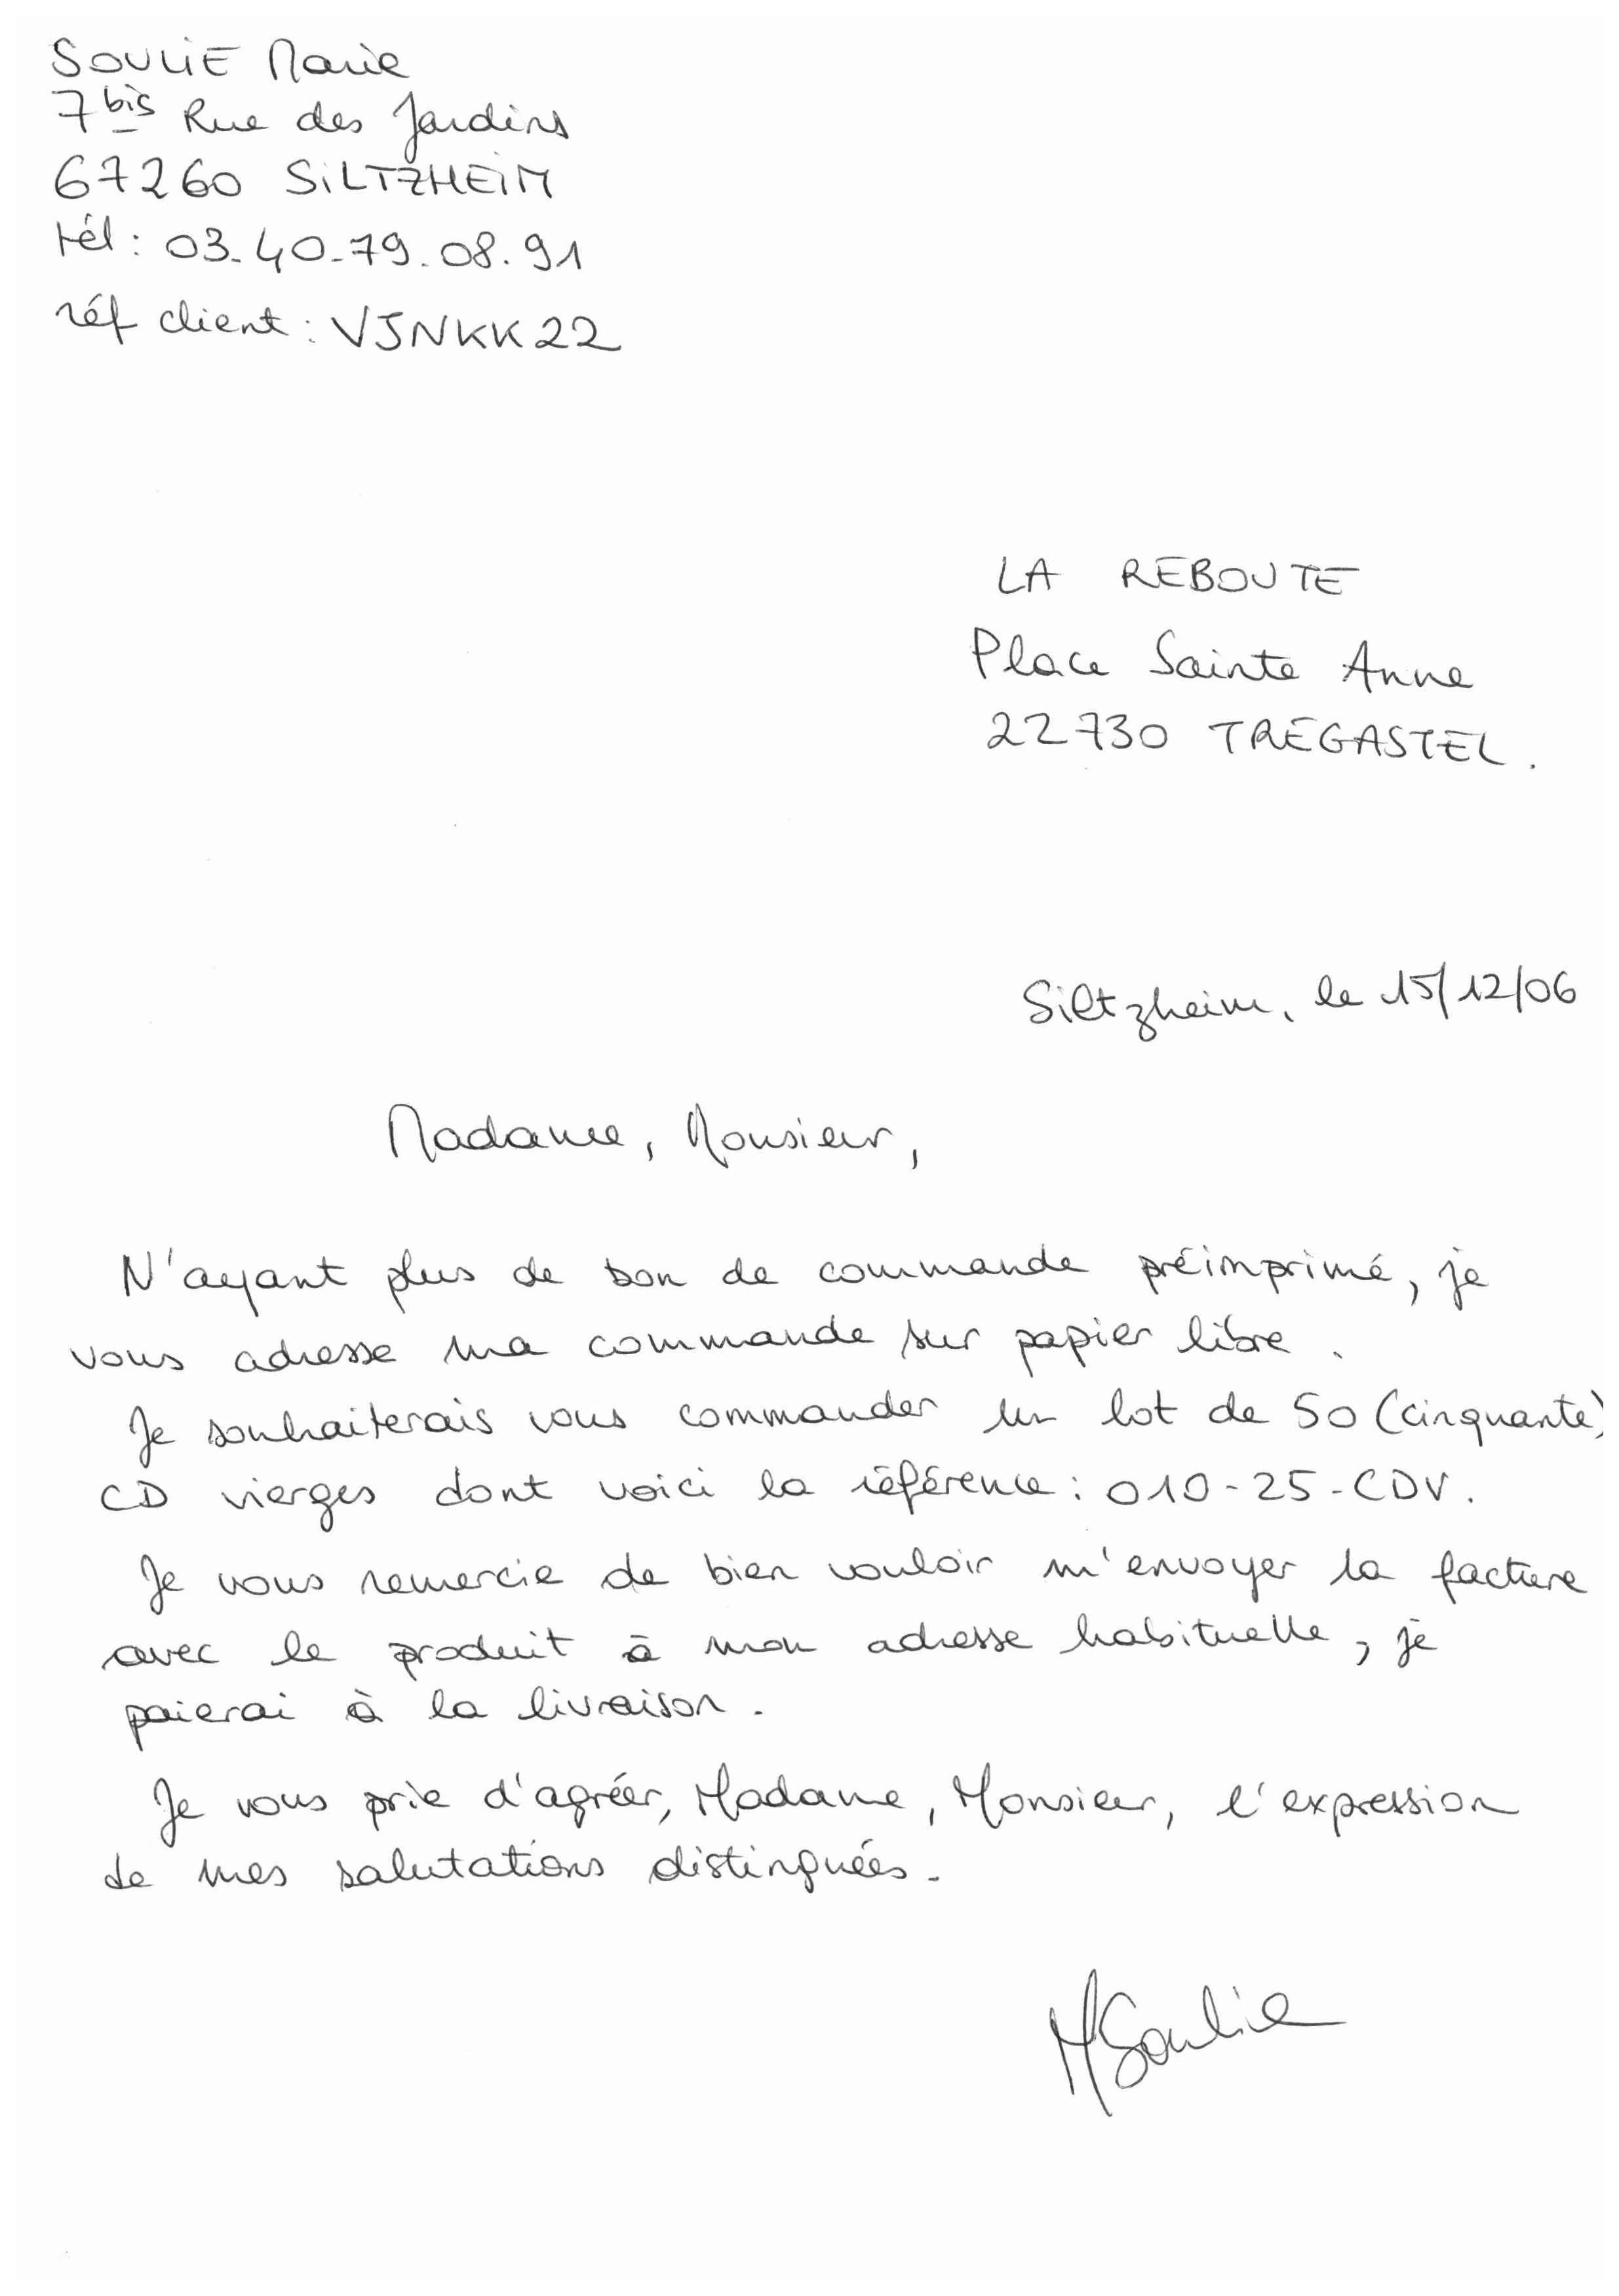 SOULIE Marie
7 bis Rue des Jardins
67260 SILTZHEIM
tél : 03.40.79.08.91
réf client : VJNKK22
LA REBOUTE
Place Sainte Anne
22730 TREGASTEL.
Siltzheim, le 15/12/06
Madame, Monsieur,
N'ayant plus de bon de commande préimprimé, je
vous adresse ma commande sur papier libre.
Je souhaiterais vous commander un lot de 50 (cinquante)
CD vierges dont voici la référence : 010-25-CDV.
Je vous remercie de bien vouloir m'envoyer la facture
avec le produit à mon adresse habituelle, je
paierai à la livraison.
Je vous prie d'agréer, Madame, Monsieur, l'expression
de mes salutations distinguées.
MSoulie